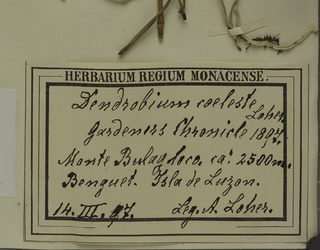 HERBARIUM REGIUM MONACENSE.
Dendrobium coeleste Loher.
Gardeners Chronicle 1897.
Monte Bulag, loco. ca: 2500m.
Benguet. Isla de Luzon.
14. III. 97. Leg. A. Loher.